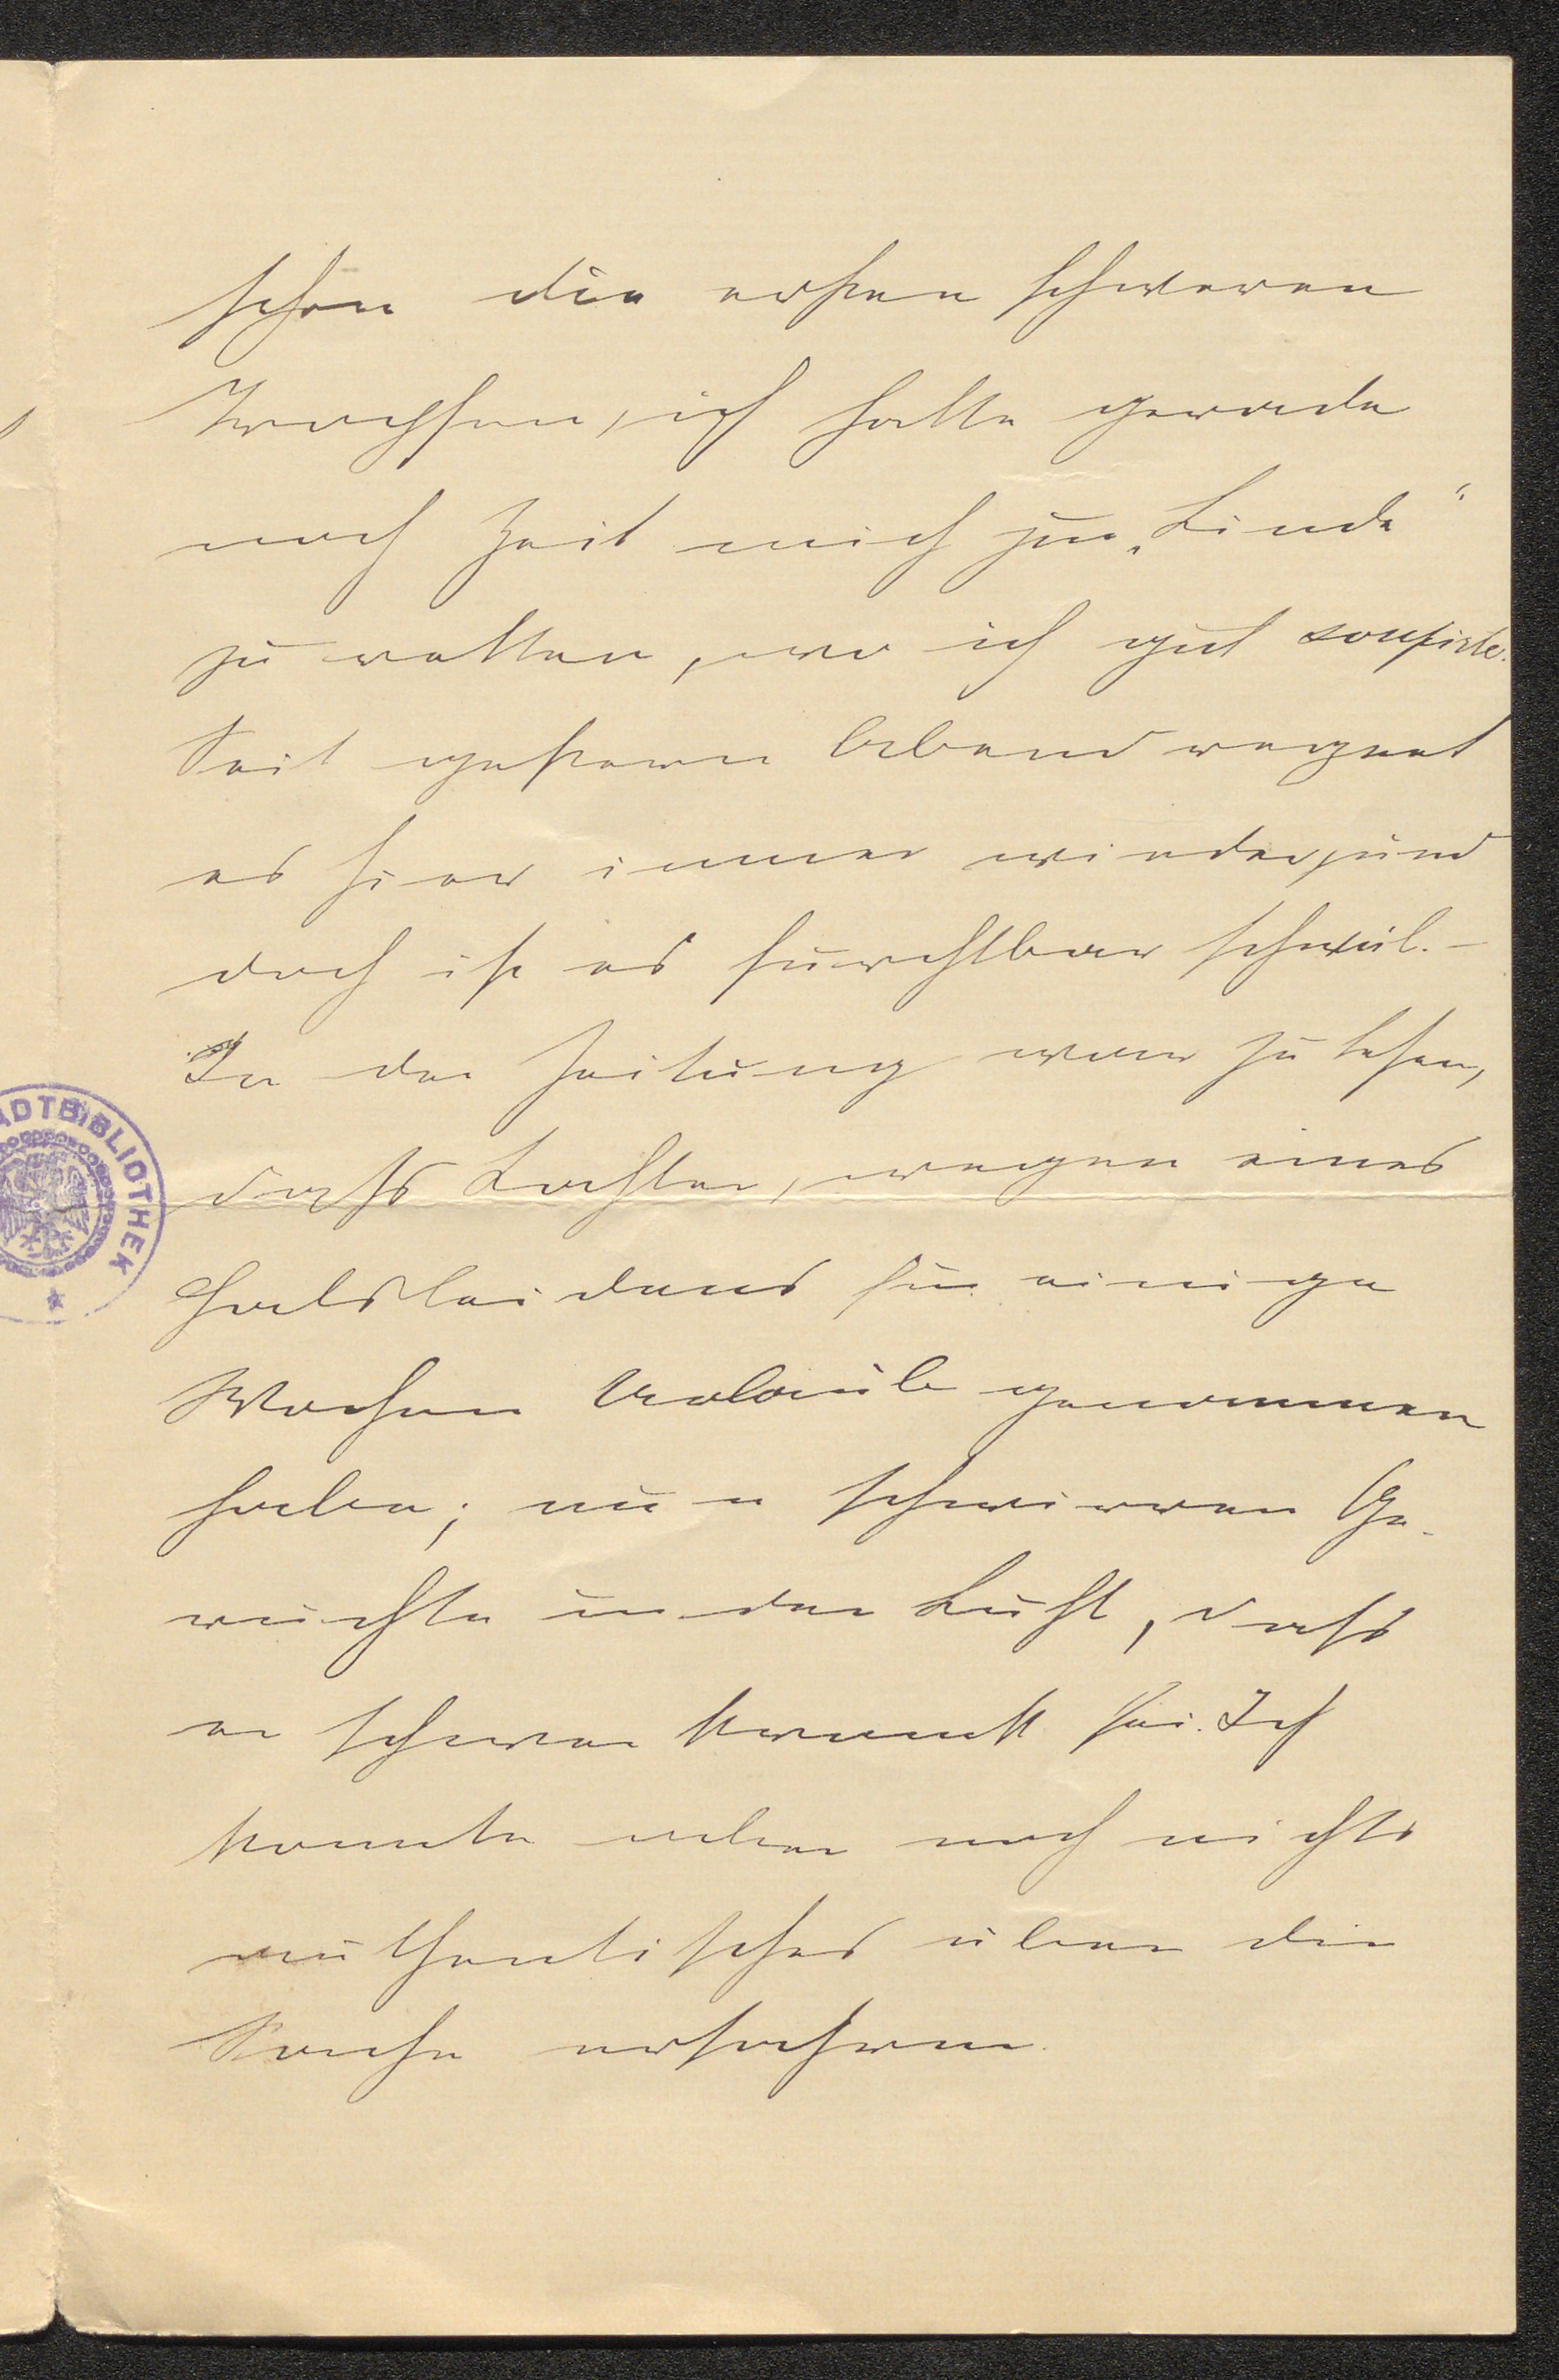 schon die ersten schweren
Tropfen, ich hatte gerade
noch Zeit mich zur „Linde"
zu retten, wo ich gut soupirte.
Seit gestern Abend regnet
es hier immer wieder, und
doch ist es furchtbar schwül. –
In der Zeitung war zu lesen,
dass Löchler, wegen eines
Halsleidens für einige
Wochen Urlaub genommen
habe; nun schwirren Ge-
rüchte in der Luft, dass
er schwer krank sei. Ich
konnte aber noch nichts
authentisches über die
Sache erfahren.
ADTBIBLIOTHEK